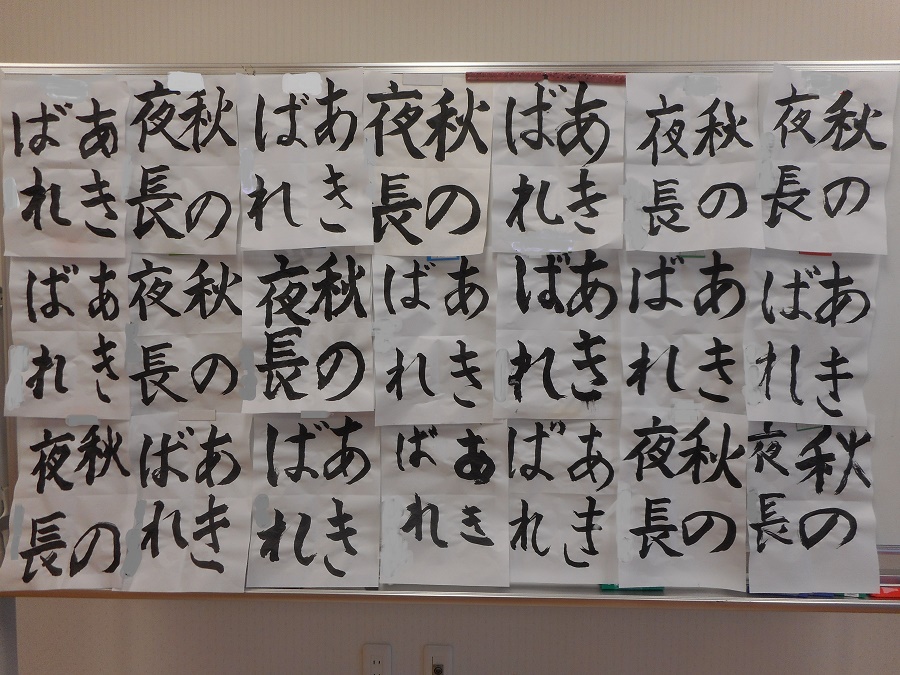 秋の
夜長
秋の
夜長
あき
ばれ
秋の
夜長
あき
ばれ
秋の
夜長
あき
ばれ
あき
ばれ
あき
ばれ
あき
ばれ
あき
ばれ
秋の
夜長
秋の
夜長
あき
ばれ
秋の
夜長
秋の
夜長
あき
ばれ
あき
ばれ
あき
ばれ
あき
ばれ
秋の
夜長